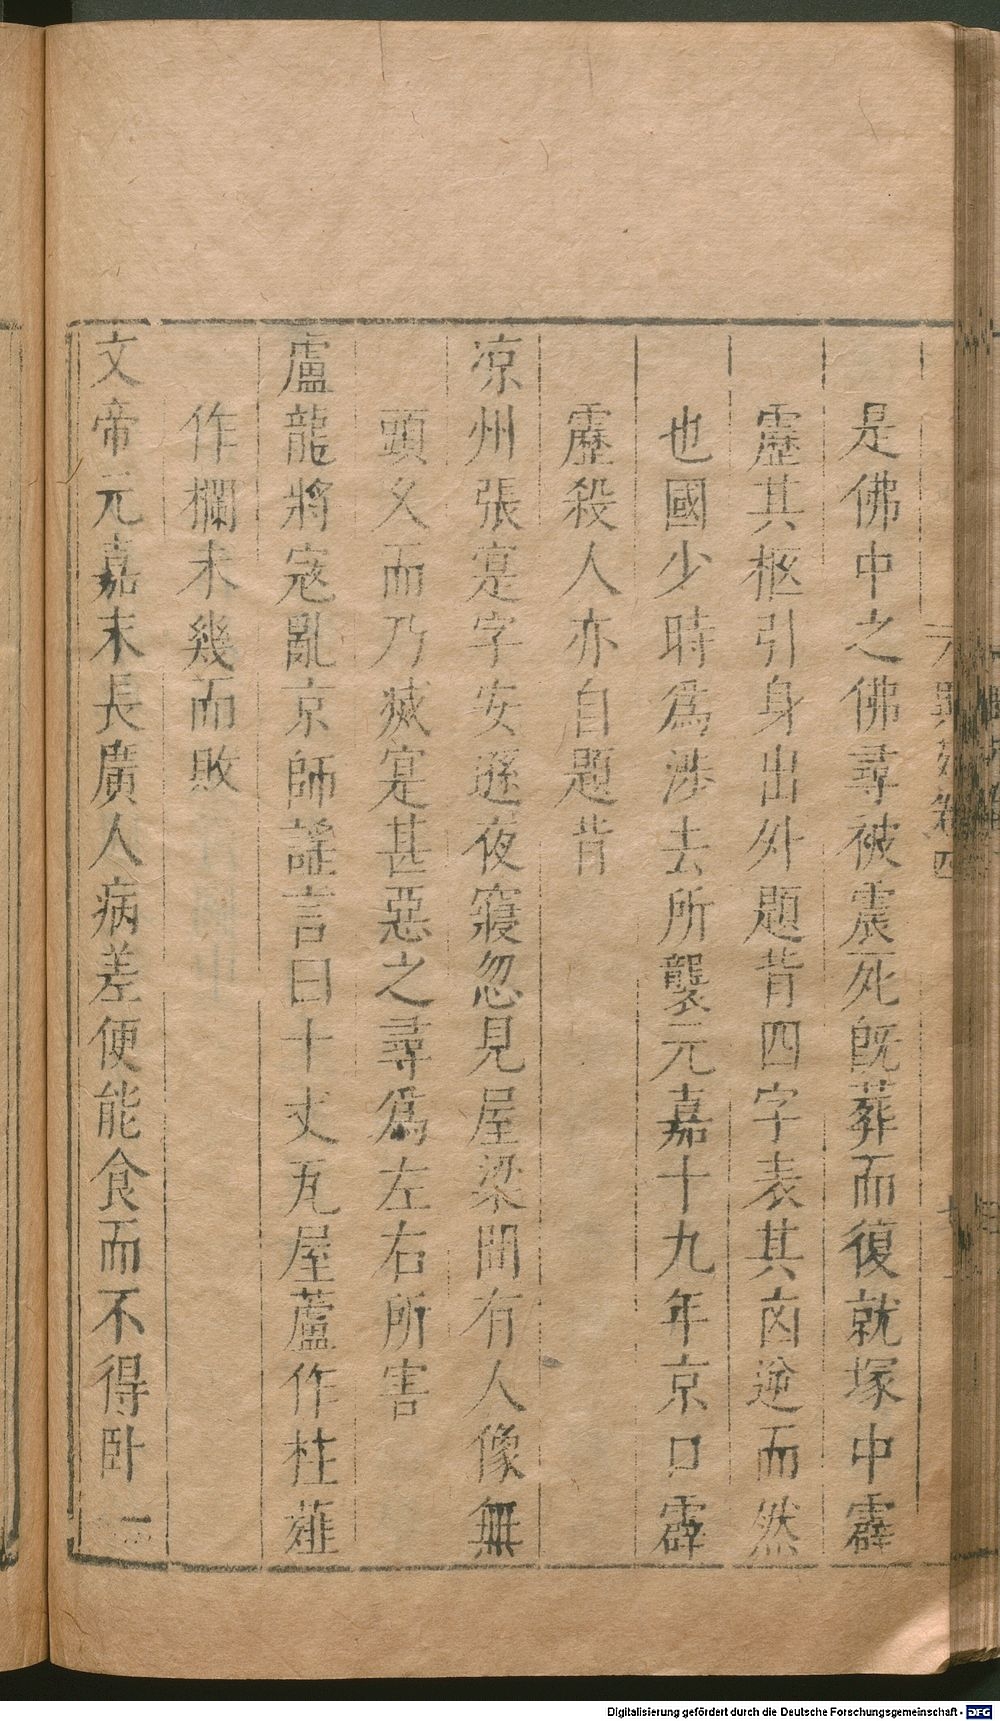 是佛中之佛尋被震死旣葬而復就塚中霹
靂其柩引身出外題背四字表其㐫逆而然
也國少時爲涉去所襲元嘉十九年京口霹
靂殺人亦自題背
凉州張寔字安遜夜寢忽見屋梁間有人像無
頭乆而乃滅寔甚惡之尋爲左右所害
盧龍將寇亂京師謠言曰十丈瓦屋蘆作柱薤
作欄未幾而敗
文帝元嘉末長廣人病差便能食而不得卧一
Digitalisierung gefördert durch die Deutsche Forschungsgemeinschaft - DFG